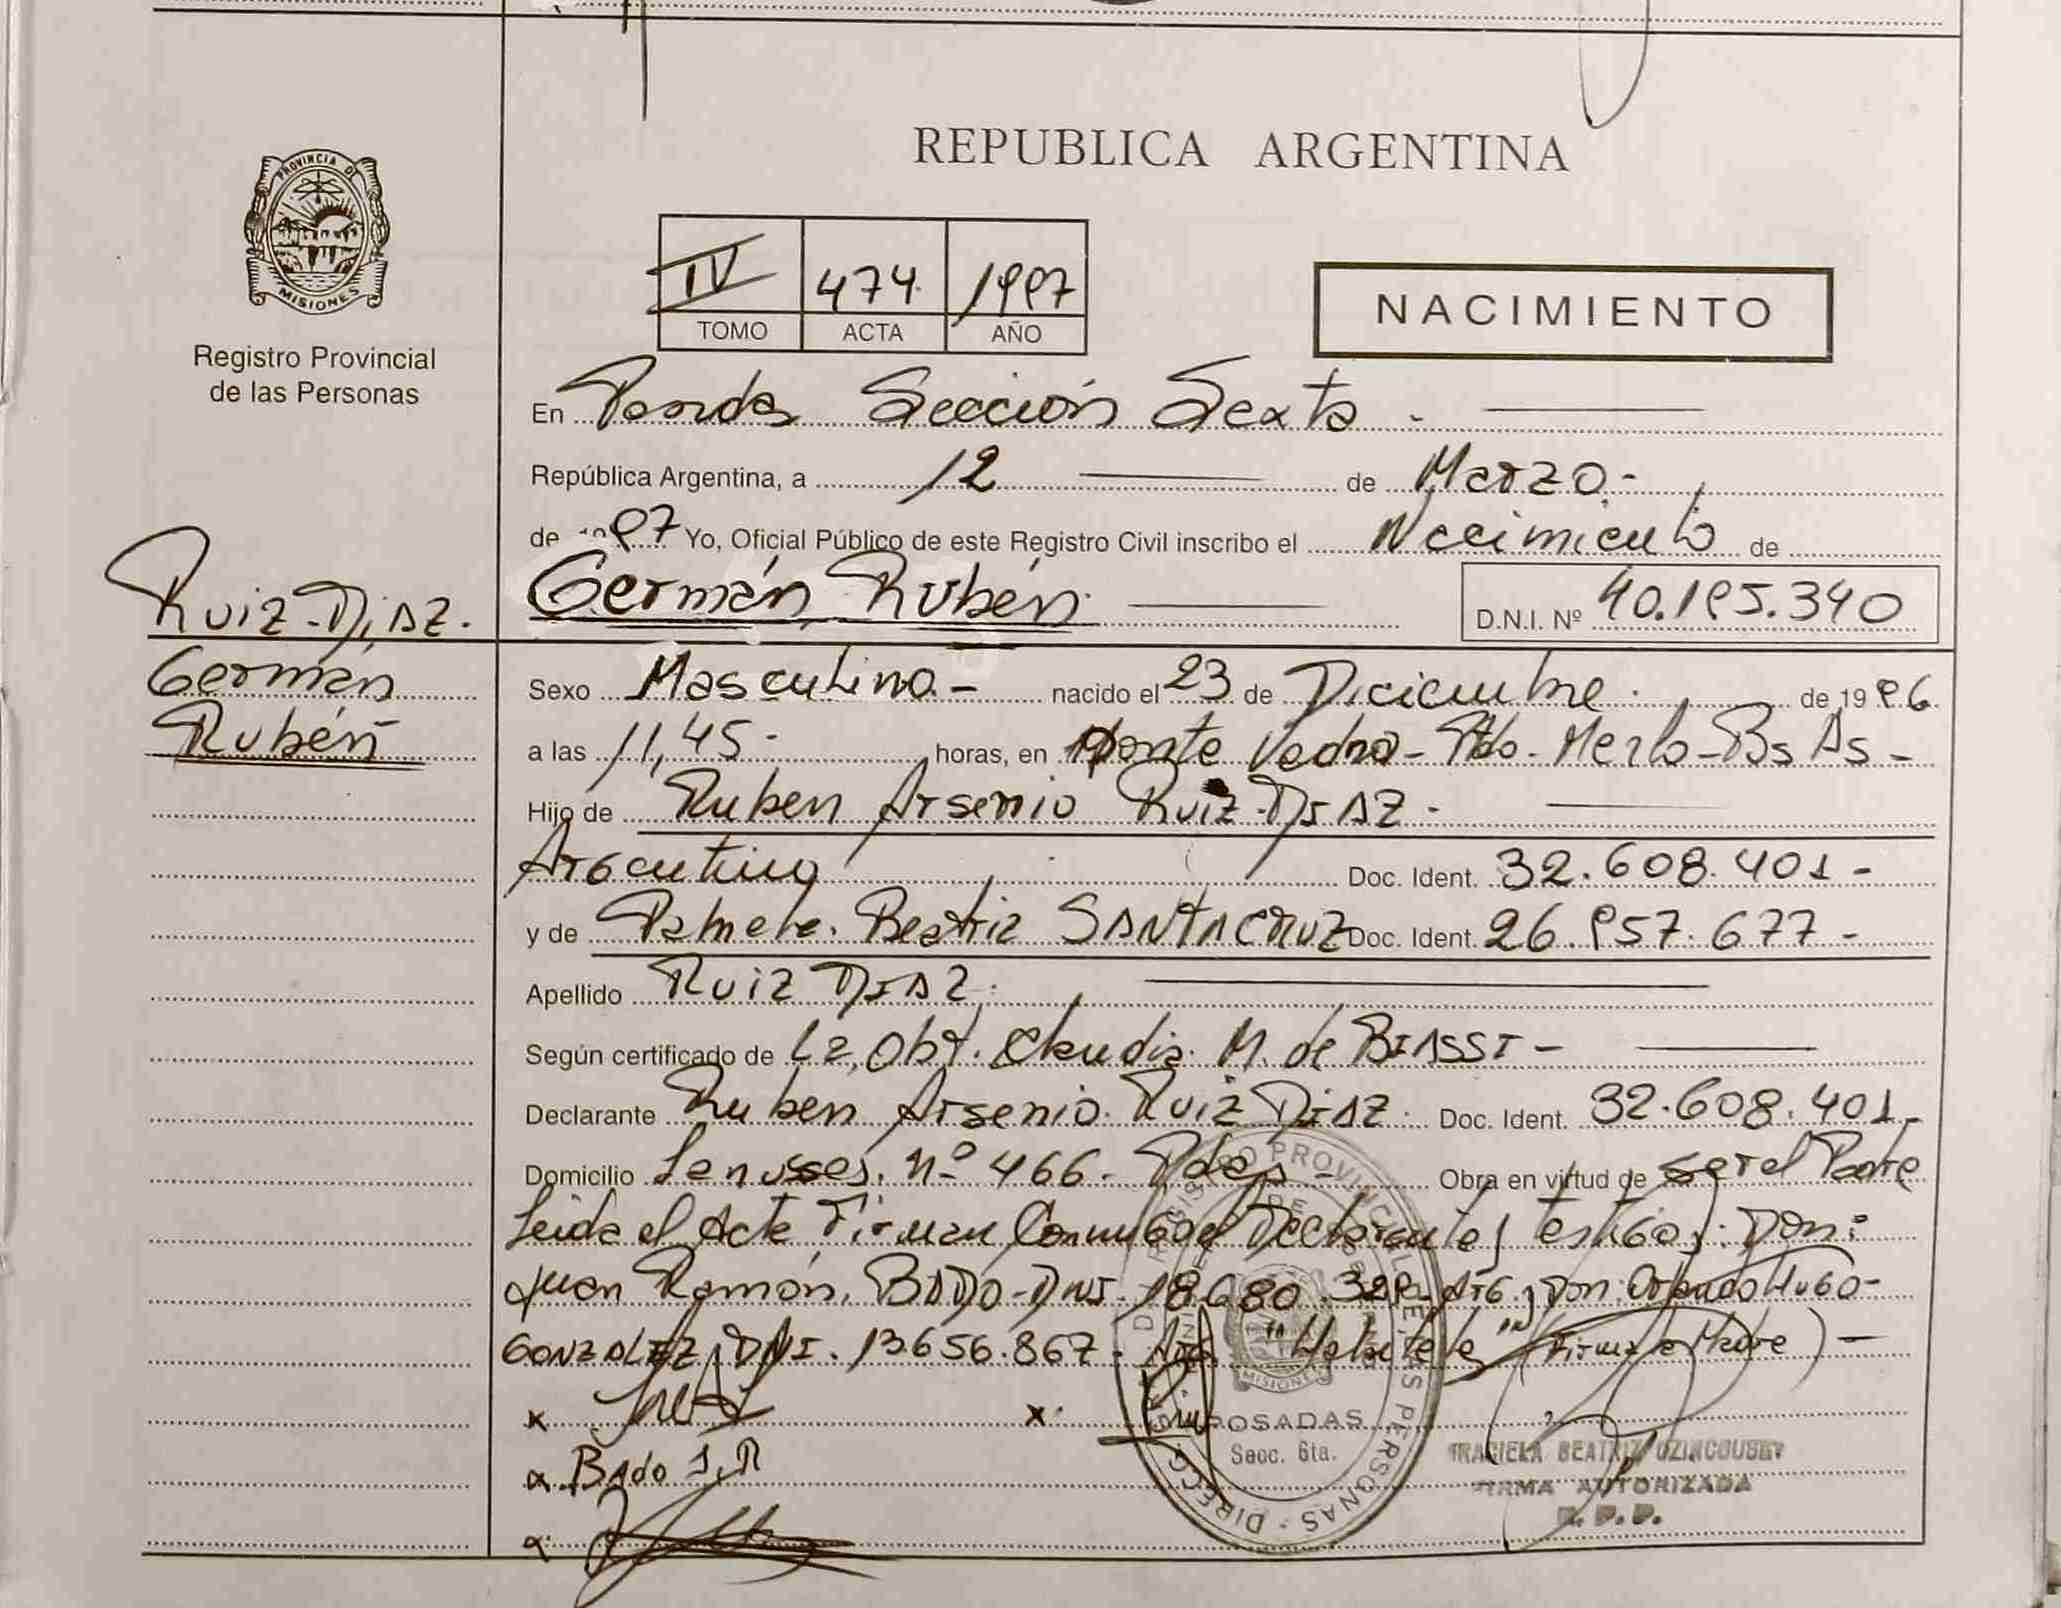 REPUBLICA ARGENTINA
PROVINCIA DE
MISIONES
Registro Provincial
de las Personas
IV 474 1997
TOMO ACTA AÑO
NACIMIENTO
En Posadas Sección Sexta -
República Argentina, a 12 de Marzo.-
de 1997 Yo, Oficial Público de este Registro Civil inscribo el Nacimiento de
Ruiz-DiAZ.
Germán Rubén D.N.I. Nº 40.195.340
Germán
Rubén
Sexo Masculino.- nacido el 23 de Diciembre. de 1996
a las 11,45- horas, en Ponte Vedra- Pdo- Merlo-Bs As-
Hijo de Ruben Arsenio Ruiz-DiAZ-
Argentino Doc. Ident. 32.608.401-
y de Pamela. Beatriz SANTACRUZ Doc. Ident. 26.957.677-
Apellido RUIZ DIAZ.
Según certificado de La Obst. Claudia. M. de BIASSI-
Declarante Ruben Arsenio. Ruiz DiAZ- Doc. Ident. 32.608.401-
Domicilio nº 466. Pdas- Obra en virtud de ser el Padre
Leida el Acta Firman Conmigo el Declarante y testigos: Don:
Juan Ramón, BADO-DNI. 18.680.329-Arg y Don: Orlando Hugo-
GONZALEZ, DNI. 13.656.867- Arg. (Firma la Madre)-
x x
x Bado J,R
x
REGISTRO PROVINCIAL DE LAS PERSONAS - DIRECC
MISIONES
POSADAS
Secc. 6ta.
GRACIELA BEATRIZ
FIRMA AUTORIZADA
R.P.P.